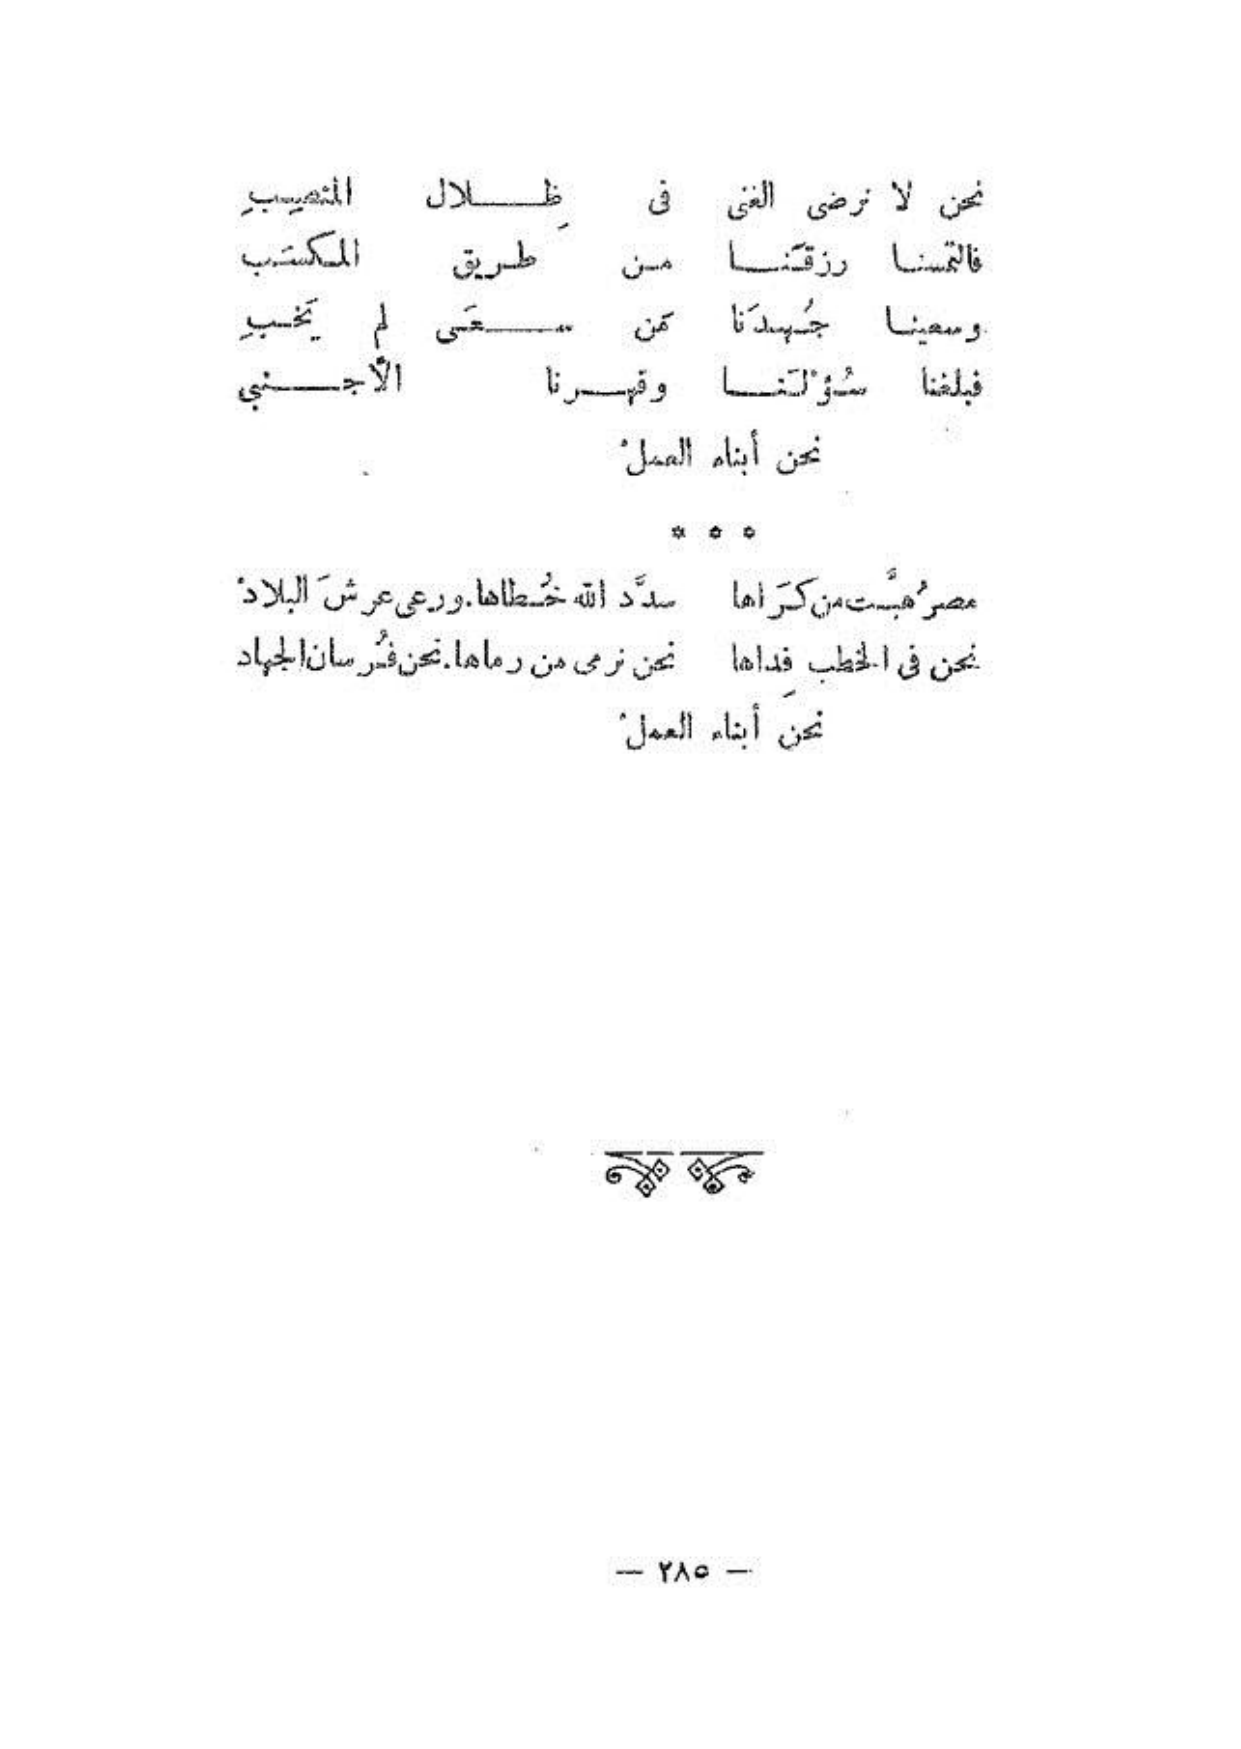 نحن لا نرضى الغنى فى ظِلال المنصِبِ
فالتمسنا رزقَنا من طريق المكسَب
وسعينا جُهدَنا مَن سعَى لم يَخبِ
فبلغنا سُؤْلَنا وقهرنا الأجنبي
نحن أبناء العملْ
* * *
مصرُ هبَّت من كَرَاها سدَّد الله خُطاها. ورعى عرشَ البلادْ
نحن فى الخطب فِداها نحن نرمى من رماها. نحن فُرسان الجهاد
نحن أبناء العملْ
— ٢٨٥ —